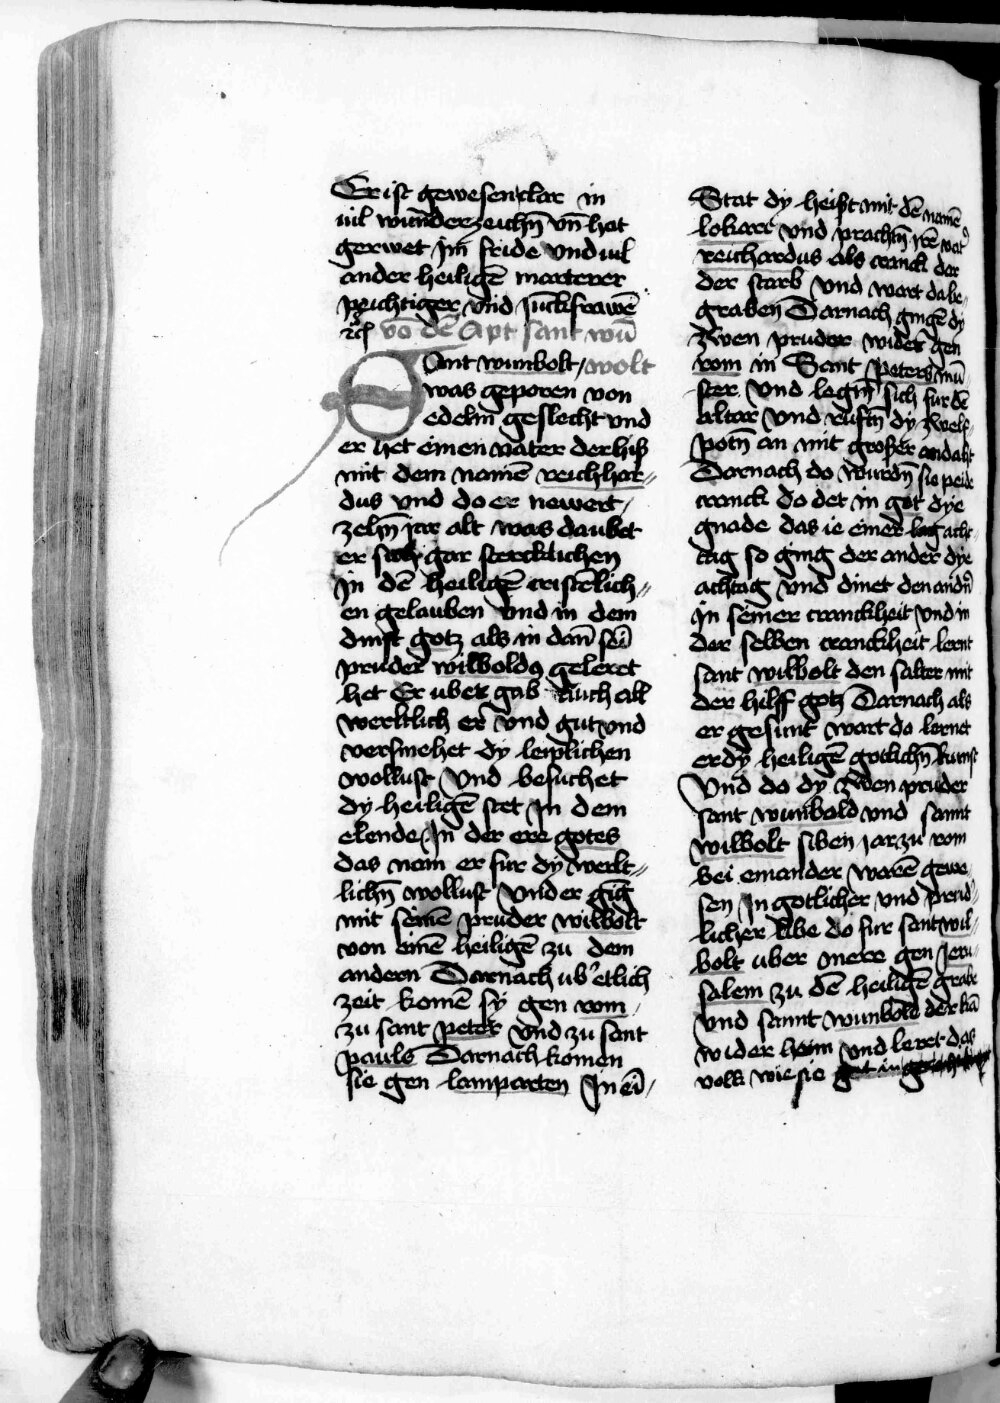 Er ist gewesen clar in
uil wunderzeichn̄ vn̄ hat
gerwet Jm̄ fride vnd uil
ander heiligē marterer
prichtiger vnd Juckfrawē
vō dē Apt sant wū
Sant wunbolt / wolt
was geporen von
edelm geslecht vnd
er het einen vater der hiß
mit dem namē reichhar=
dus vnd do er newert /
zehn̄ jar alt was da ubet
er sich gar sterckleichen
Jn dē heiligē cristelich=
en gelauben vnd in dem
dinst gotz als in dan̄ sei
pruder wilboldꝰ geleret
het Er uber gab Auch all
werltlich er vnd gut vnd
versmehet dy leiplichen
wollust Vnd besuchet
dy heiligē stet Jn dem
elende Jn der ere gotes
das nam er fur dy werlt=
lichn̄ wollust Vnd er gig
mit seinē pruder wilbolt
von einē heiligē zu dem
andern Darnach ub' etlich
zeit komē sy gen rom /
zu sant peter vnd zu sant
pauls Darnach komen
sie gen lamparten Jn ei /
Stat dy heist mit dē namē
lokarr vnd prachtn̄ irē vat'
reichardus als cranck der
der starb vnd wart da be=
graben Darnach gingē dy
zwen pruder wider gen
rom in Sant peters mū
ster Vnd legn̄ sich fur dē
altar vnd rufftn̄ dy zwelf=
potn̄ an mit großer andaht
Darnach do wurdn̄ sie peide
cranck do det in got dye
gnade das ie einer lag acht
tag so ging der ander dye
achtag vnd dinet den andn̄
Jn seiner cranckheit vnd in
der selben cranckheit lernt
sant wilbolt den salter mit
der hilff gotz Darnach als
er gesunt wart do lernet
er dy heiligē gotlichn̄ kunst
Vnd do dy zwen pruder
sant wunbold vnd sannt
wilbolt siben jar zu rom
bei einander warē gewe=
sen Jn gotlicher vnd prud=
licher libe do fur sant wil=
bolt uber mere gen Jeru=
salem zu dē heiligē grabe
vnd sannt wunbold der kā
wider heim vnd leret das
volk wie sie